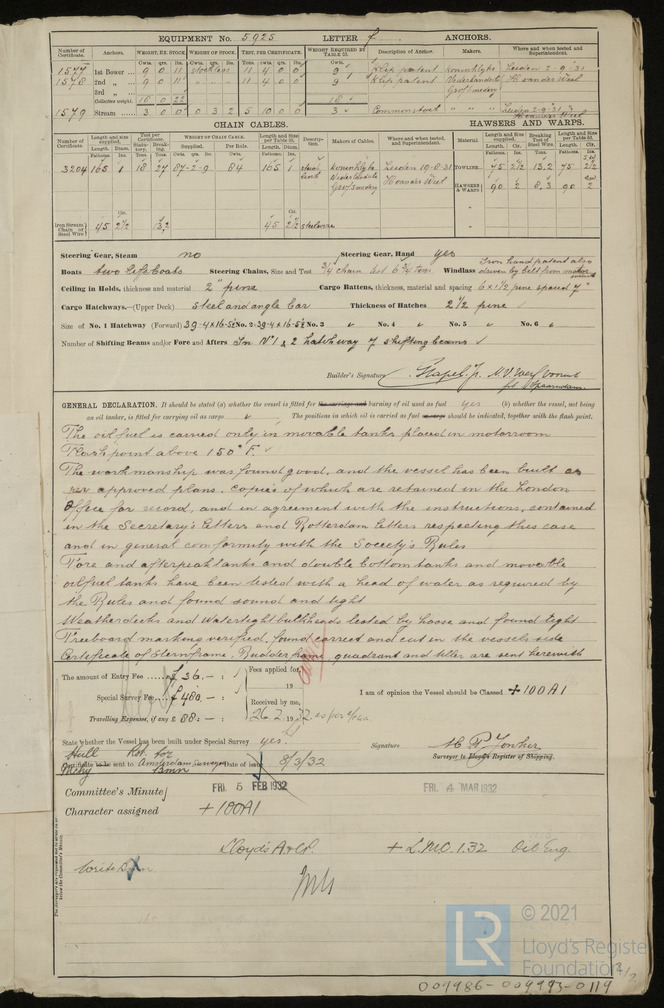 EQUIPMENT No. 5925 LETTER f ANCHORS.
Number of Certificate. Anchors. WEIGHT, EX. STOCK. WEIGHT OF STOCK. TEST, PER CERTIFICATE. WEIGHT REQUIRED BY TABLE 31. Description of Anchor. Makers. Where and when tested and Superintendent.
Cwts. qrs. lbs. Cwts. qrs. lbs. Tons. cwts. qrs. lbs. Cwts.
1577 1st Bower ... 9 0 11 stockless 11 4 0 0 9 patent Leiden 2-9-31
1578 2nd " ... 9 0 11 11 4 0 0 9 patent
3rd " ...
Collective weight. 18 0 22 18
1579 Stream ... 3 0 0 0 3 2 5 10 0 0 3 Common stock " " " Leiden 2-9-31
CHAIN CABLES. HAWSERS AND WARPS.
Number of Certificate. Length and size supplied. Test per Certificate. WEIGHT OF CHAIN CABLE. Length and Size per Table 31. Description. Makers of Cables. Where and when tested, and Superintendent. Material Length and size supplied. Breaking Test of Steel Wire. Length and Size per Table 31.
3204 165 1 18 27 87-2-9 84 165 1 Leiden 19-8-31 TOWLINE 75 2½ 13,2 75 2½
HAWSERS & WARPS 90 2 8,3 90 2
Iron Stream Chain or Steel Wire 45 2½ 13,2 45 2½ steelwire
Steering Gear, Steam no Steering Gear, Hand yes
Boats two Lifeboats Steering Chains, Size and Test ¾ chain Windlass Iron hand patent also driven by belt from motor
Ceiling in Holds, thickness and material 2" pine Cargo Battens, thickness, material and spacing 6 x 1½ pine spaced 7"
Cargo Hatchways.—(Upper Deck) steel and angle bar Thickness of Hatches 2½ pine
Size of No. 1 Hatchway (Forward) 39-4x16-5½ No. 2. 39-4x16-5½ No. 3 " No. 4 " No. 5 " No. 6 "
Number of Shifting Beams and/or Fore and Afters In No 1 & 2 hatchway 7 shifting beams
Builder's Signature
GENERAL DECLARATION. It should be stated (a) whether the vessel is fitted for the carriage and burning of oil used as fuel yes (b) whether the vessel, not being
an oil tanker, is fitted for carrying oil as cargo " The positions in which oil is carried as fuel or cargo should be indicated, together with the flash point.
The oil fuel is carried only in movable tanks placed in motorroom
Flash point above 150° F.
The workmanship was found good, and the vessel has been built as
per approved plans, copies of which are retained in the London
Office for record, and in agreement with the instructions, contained
in the Secretary's letters and Rotterdam letters respecting this case
and in general conformity with the Society's Rules
Fore and afterpeak tanks and double bottom tanks and movable
oilfuel tanks have been tested with a head of water as required by
the Rules and found sound and tight
Weatherdecks and Watertight bulkheads tested by hoose and found tight
Freeboard marking verified, found correct and cut in the vessels side
Certificate of Sternframe, Rudder frame, quadrant and tiller are sent herewith
The amount of Entry Fee ...... £ 36. — : Fees applied for,
Special Survey Fee ... £ 480. — : 19
Travelling Expenses, if any £ 88: — : Received by me, 26. 2. 1932
I am of opinion the Vessel should be Classed +100A1
State whether the Vessel has been built under Special Survey yes.
Signature
Surveyor to Lloyd's Register of Shipping.
Hull
Certificate to be sent to Amsterdam Surveyor Date of issue 8/3/32
Committee's Minute FRI. 5 FEB 1932 FRI. 4 MAR 1932
Character assigned +100A1
Lloyd's A&CP. + L.M.C. 1.32 Oil Eng.
Write
© 2021
LR
Lloyd's Register
Foundation
009986-009993-0119